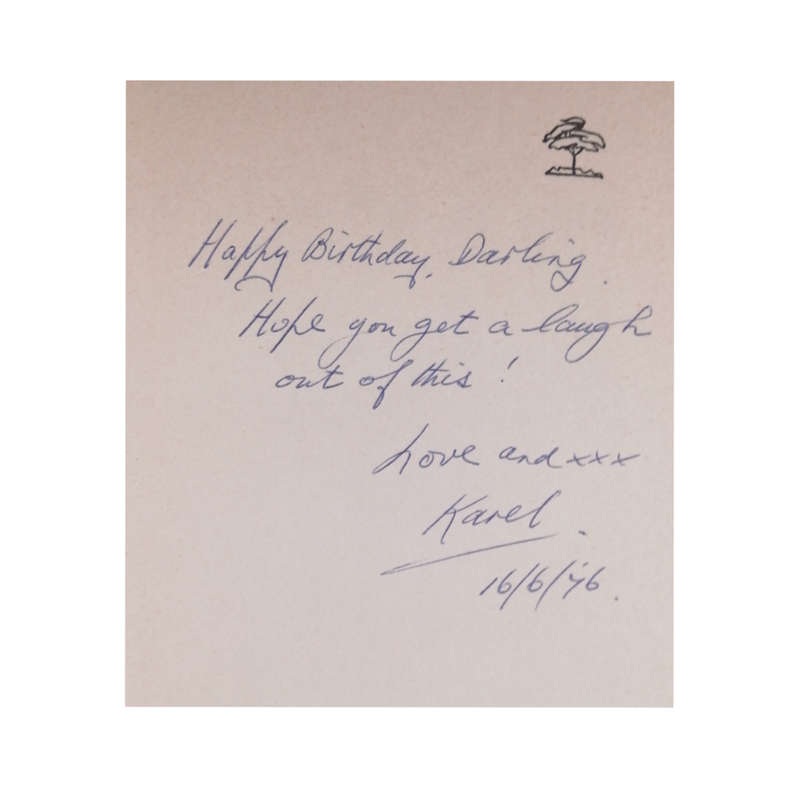 Happy Birthday, Darling.
Hope you get a laugh
out of this!
Love and xxx
Karel.
16/6/'76.